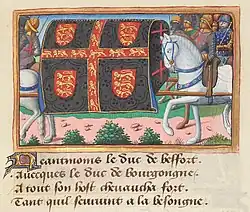 Neantmoins le duc de beffort.
Avecques le duc de bourgongne.
A tout son host chevaucha fort.
Tant quil seurvint a la besongne.